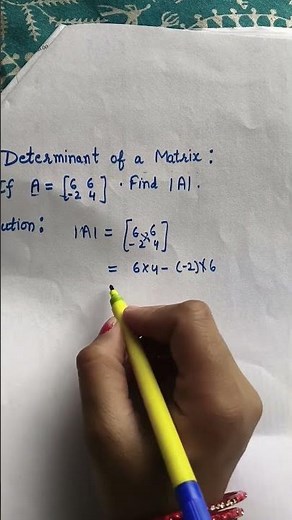 Determinant of a Matrix :
If A = [6 6 -2 4] . Find |A|.
ution : |A| = [6 6 -2 4]
= 6×4 - (-2)×6